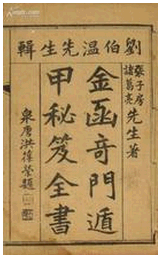 劉伯溫先生輯
張子房
諸葛亮
先生著
金函奇門遁
甲秘笈全書
泉唐洪葆榮題